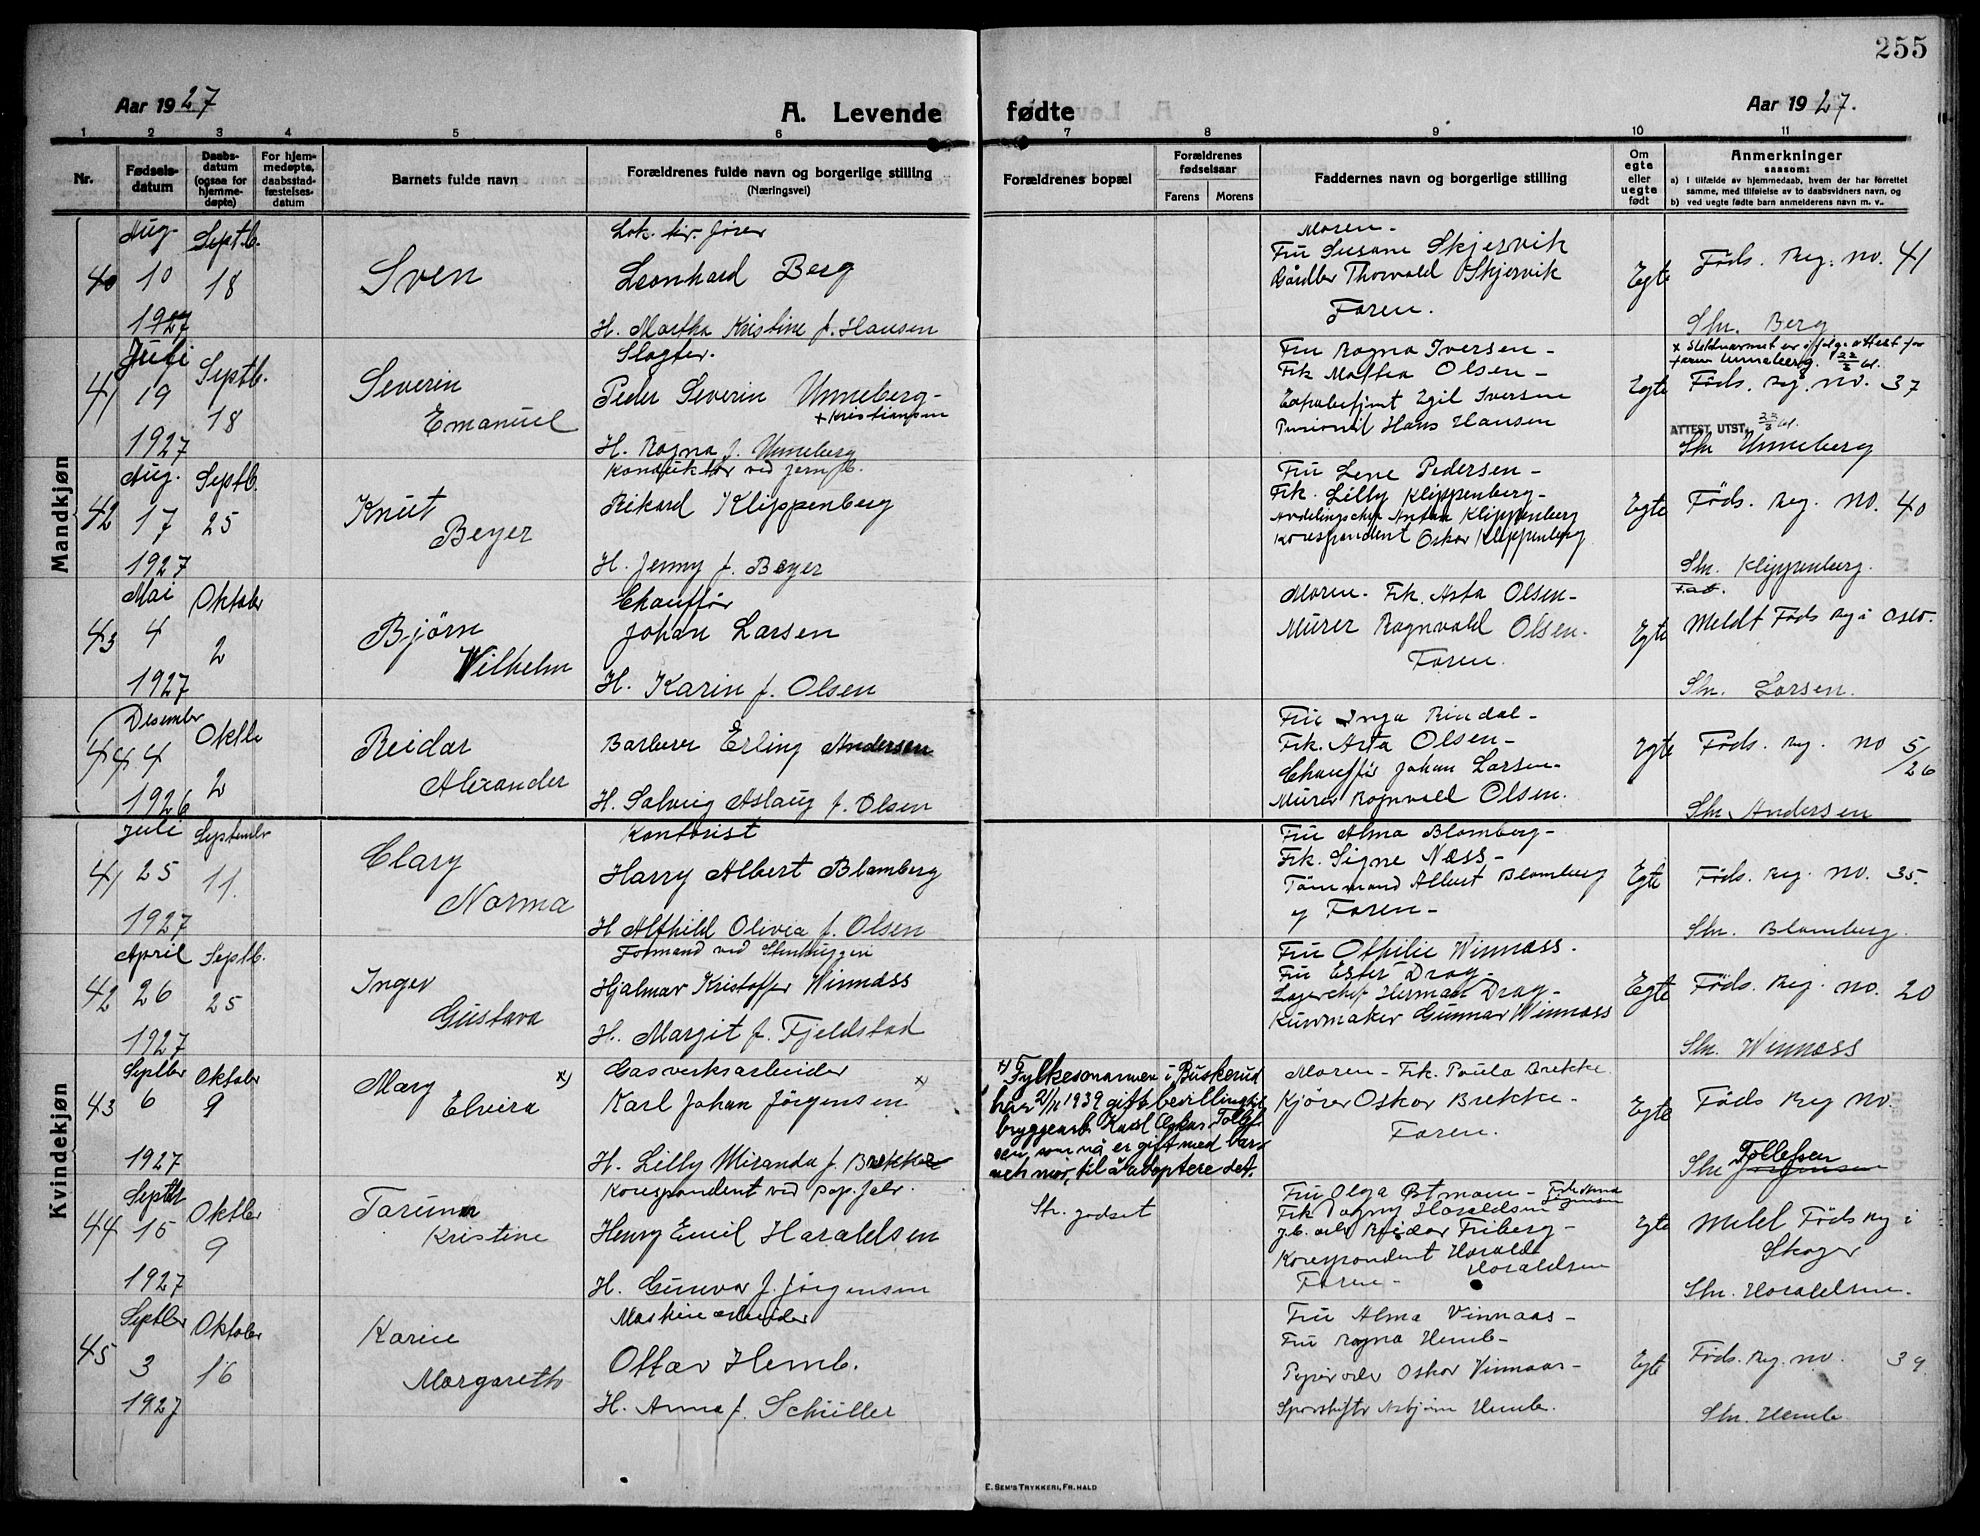 255
Aar 1927
A. Levende fødte
Aar 1927.
1 2 3 4 5 6 7 8 9 10 11
Nr.
Fødsels-
datum
Daabs-
datum
(ogsaa for
hjemme-
døpte)
For hjem-
medøpte,
daabsstad-
fæstelses-
datum
Barnets fulde navn
Forældrenes fulde navn og borgerlige stilling
(Næringsvei)
Forældrenes bopæl
Forældrenes
fødselsaar
Farens
Morens
Faddernes navn og borgerlige stilling
Om
egte
eller
uegte
født
Anmerkninger
saasom:
a) I tilfælde av hjemmedaab, hvem der har forrettet
samme, med tilføielse av to daabsvidners navn, og
b) ved uegte fødte barn anmelderens navn m. v..
Mandkjøn
40
Aug.
10
1927
Septb.
18
Sven
Lok. kir. fører
Leonhard Berg
H. Martha Kristine f. Hansen
Moren -
Fru Susane Skjervik
Thorvald Skjervik
Faren.
Egte
Føds. Reg. no. 41
Stn. Berg
41
Juli
19
1927
Septb.
18
Severin
Emanuel
Slagter.
Peder Severin Unneberg -
+ Kristiansen
H. Ragna f. Unneberg
Fru Ragna Iversen -
Frk Martha Olsen -
Egil Iversen
Hans Hansen
Egte
faren Unneberg. 22/3 41.
Føds. reg. no. 37
ATTEST. UTST. 22/3 41.
Stn Unneberg
42
Aug.
17
1927
Septb.
25
Knut
Beyer
Konduktør ved jernb.
Rikard Klippenberg
H. Jenny f. Beyer
Fru Lene Pedersen -
Frk. Lilly Klippenberg -
Avdelingschef Anton Klippenberg
Korespondent Oskar Klippenberg
Egte
Føds. Reg. no. 40
Stn. Klippenberg.
43
Mai
4
1927
Oktober
2
Bjørn
Wilhelm
Chauffør
Johan Larsen
H. Karin f. Olsen
Moren - Frk. Asta Olsen -
Murer Ragnvald Olsen.
Faren.
Egte
Fad.
Meldt Føds Reg i Oslo.
Stn. Larsen.
44
Desember
4
1926
Oktbr
2
Reidar
Alexander
Barberer Erling Andersen
H. Solveig Aslaug f. Olsen
Fru Inga Rindal -
Frk. Asta Olsen -
Chauffør Johan Larsen -
Murer Ragnvald Olsen.
Egte
Føds. Reg. no 5/26
Stn Andersen
Kvindekjøn
41
Juli
25
1927
September
11.
Clary
Norma
Kontorist
Harry Albert Blomberg
H Alfhild Olivia f. Olsen
Fru Alma Blomberg -
Frk. Signe Næss -
Tømmermand Albert Blomberg
og Faren -
Egte
Føds. Reg. no. 35.
Stn. Blomberg.
42
April
26
1927
Septb.
25
Inger
Gustava
Formand ved Stenhuggeri
Hjalmar Kristoffer Winnæss
H. Margit f. Fjeldstad
Fru Othilie Winnæss.
Fru Ester Drag -
Lagerchef Herman Drag -
Kurvmaker Gunnar Winnæss
Egte
Føds. Reg. no. 20
Stn. Winnæss
43
Septber
6
1927
Oktober
9
Mary x)
Elvira
Gasverksarbeider
Karl Johan Jørgensen x)
H. Lilly Miranda f. Brekke
x) Fylkesmannen i Buskerud
har 2/11 1939 gitt bevilling til
bryggearb. Karl Oskar Tollef-
sen, som nå er gift med bar-
nets mor, til å adoptere det.
Moren - Frk. Paula Brekke.
Kjører Oskar Brekke -
Faren.
Egte
Føds Reg no
Tollefsen
Stn Jørgensen
44
Septbr
15
1927
Oktber
9
Torunn
Kristine
Korespondent ved pap. fabr.
Henry Emil Haraldsen
H. Gunvor f. Jørgensen
Str. godset
Fru Olga Østmoen -
Frk Dagny Haraldsen
Reidar Friberg -
Korespondent Harald
Haraldsen
Faren -
Egte
Meldt Føds Reg i
Skoger
Stn. Haraldsen.
45
Septber
3
1927
Oktober
16
Karin
Margareth
Maskinarbeider
Ottar Hemb.
H. Anna f. Schüller
Fru Alma Vinnaas -
Fru Ragna Hemb -
Papirarb Oskar Vinnaas -
Sporskifter Asbjørn Hemb.
Egte
Føds. Reg. no. 39
Stn. Hemb
E. SEM'S TRYKKERI, FR.HALD